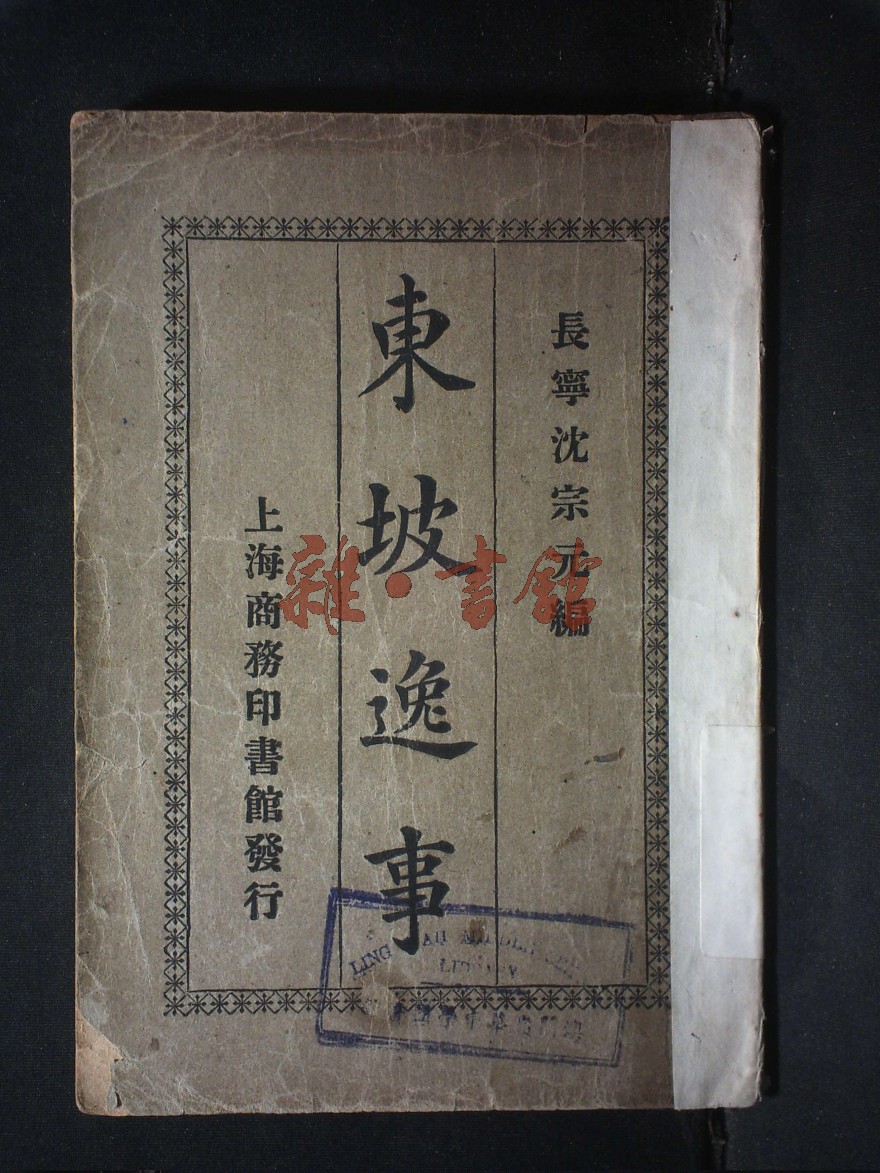 長寧沈宗元編
東坡逸事
上海商務印書館發行
雜·書館
LING